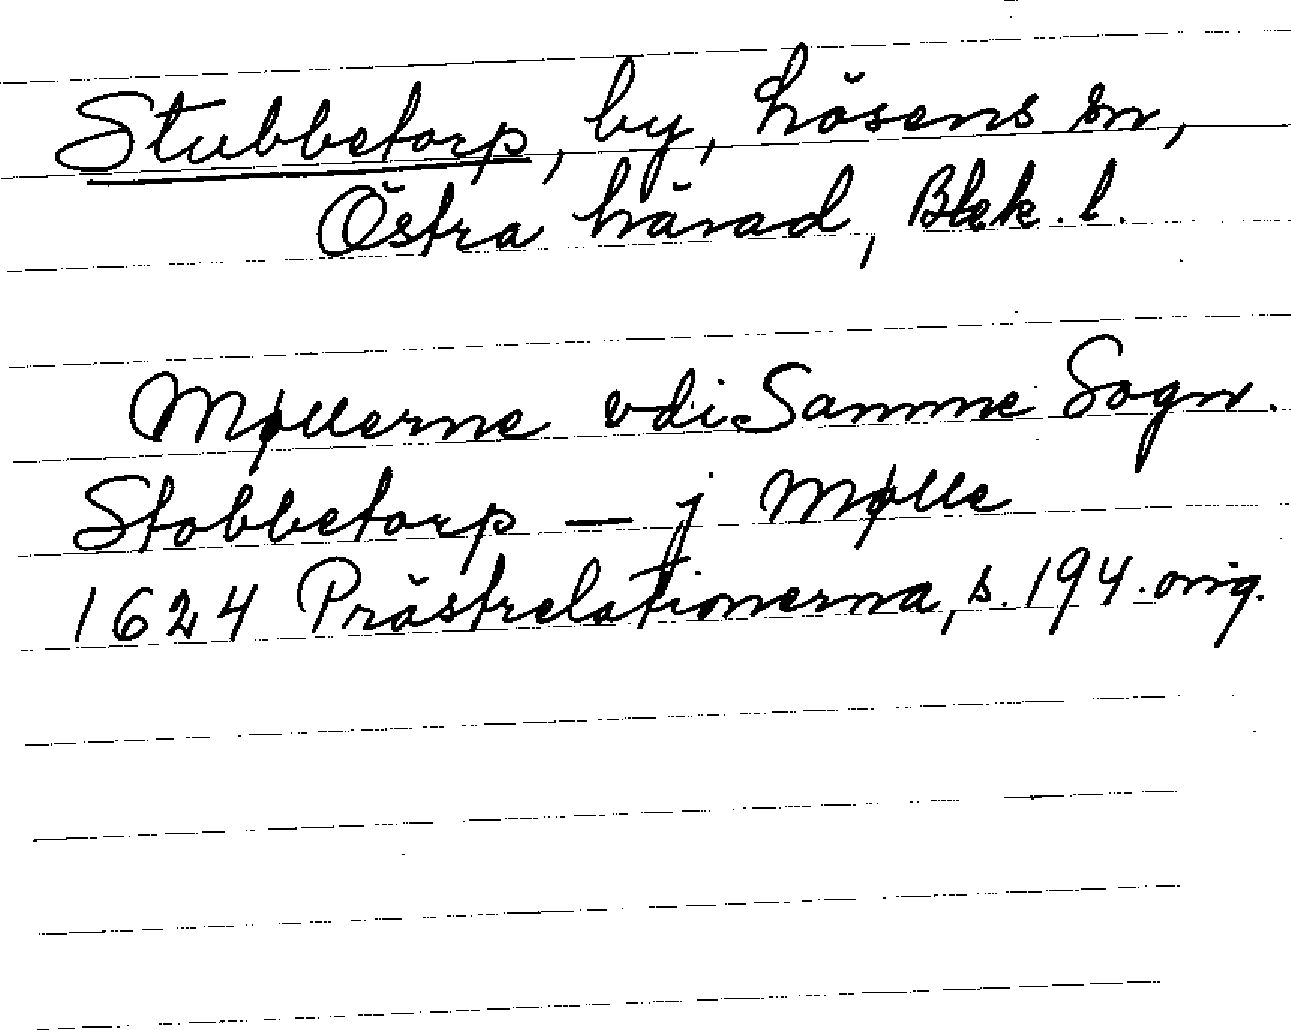 Stubbetorp, by, Lösens sn,
Östra härad, Blek. l.
Møllerne vdi Samme Sogn.
Stobbetorp — j Mølle
1624 Prästrelationerna, s. 194. orig.